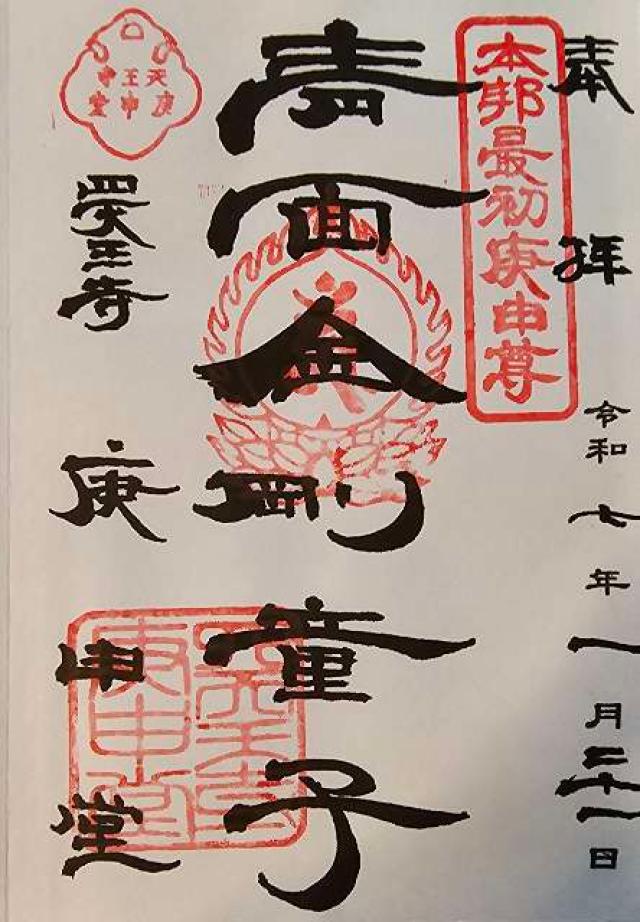 奉拝
令和七年一月三十一日
本邦最初庚申尊
青面金剛童子
四天王寺
庚申堂
天王寺
庚申堂
四天王寺
庚申堂